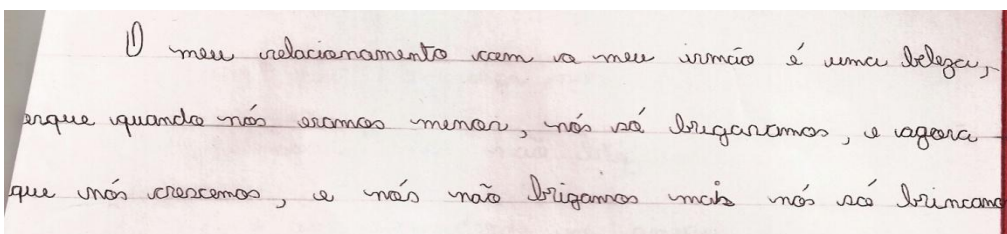 O meu relacionamento com o meu irmão é uma beleza,
orque quando nós eramos menor, nós só brigaramos, e agora
que nós crescemos, e nós não brigamos mais nós só brincamo